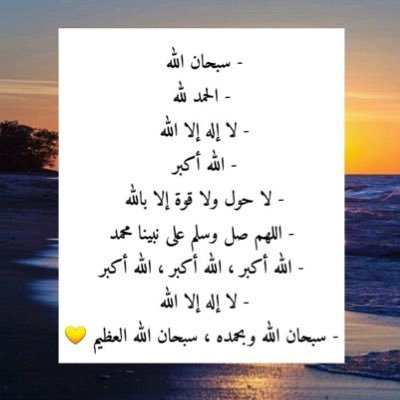 - سبحان الله
- الحمد لله
- لا إله إلا الله
- الله أكبر
- لا حول ولا قوة إلا بالله
- اللهم صل وسلم على نبينا محمد
- الله أكبر ، الله أكبر ، الله أكبر
- لا إله إلا الله
- سبحان الله وبحمده ، سبحان الله العظيم 💛